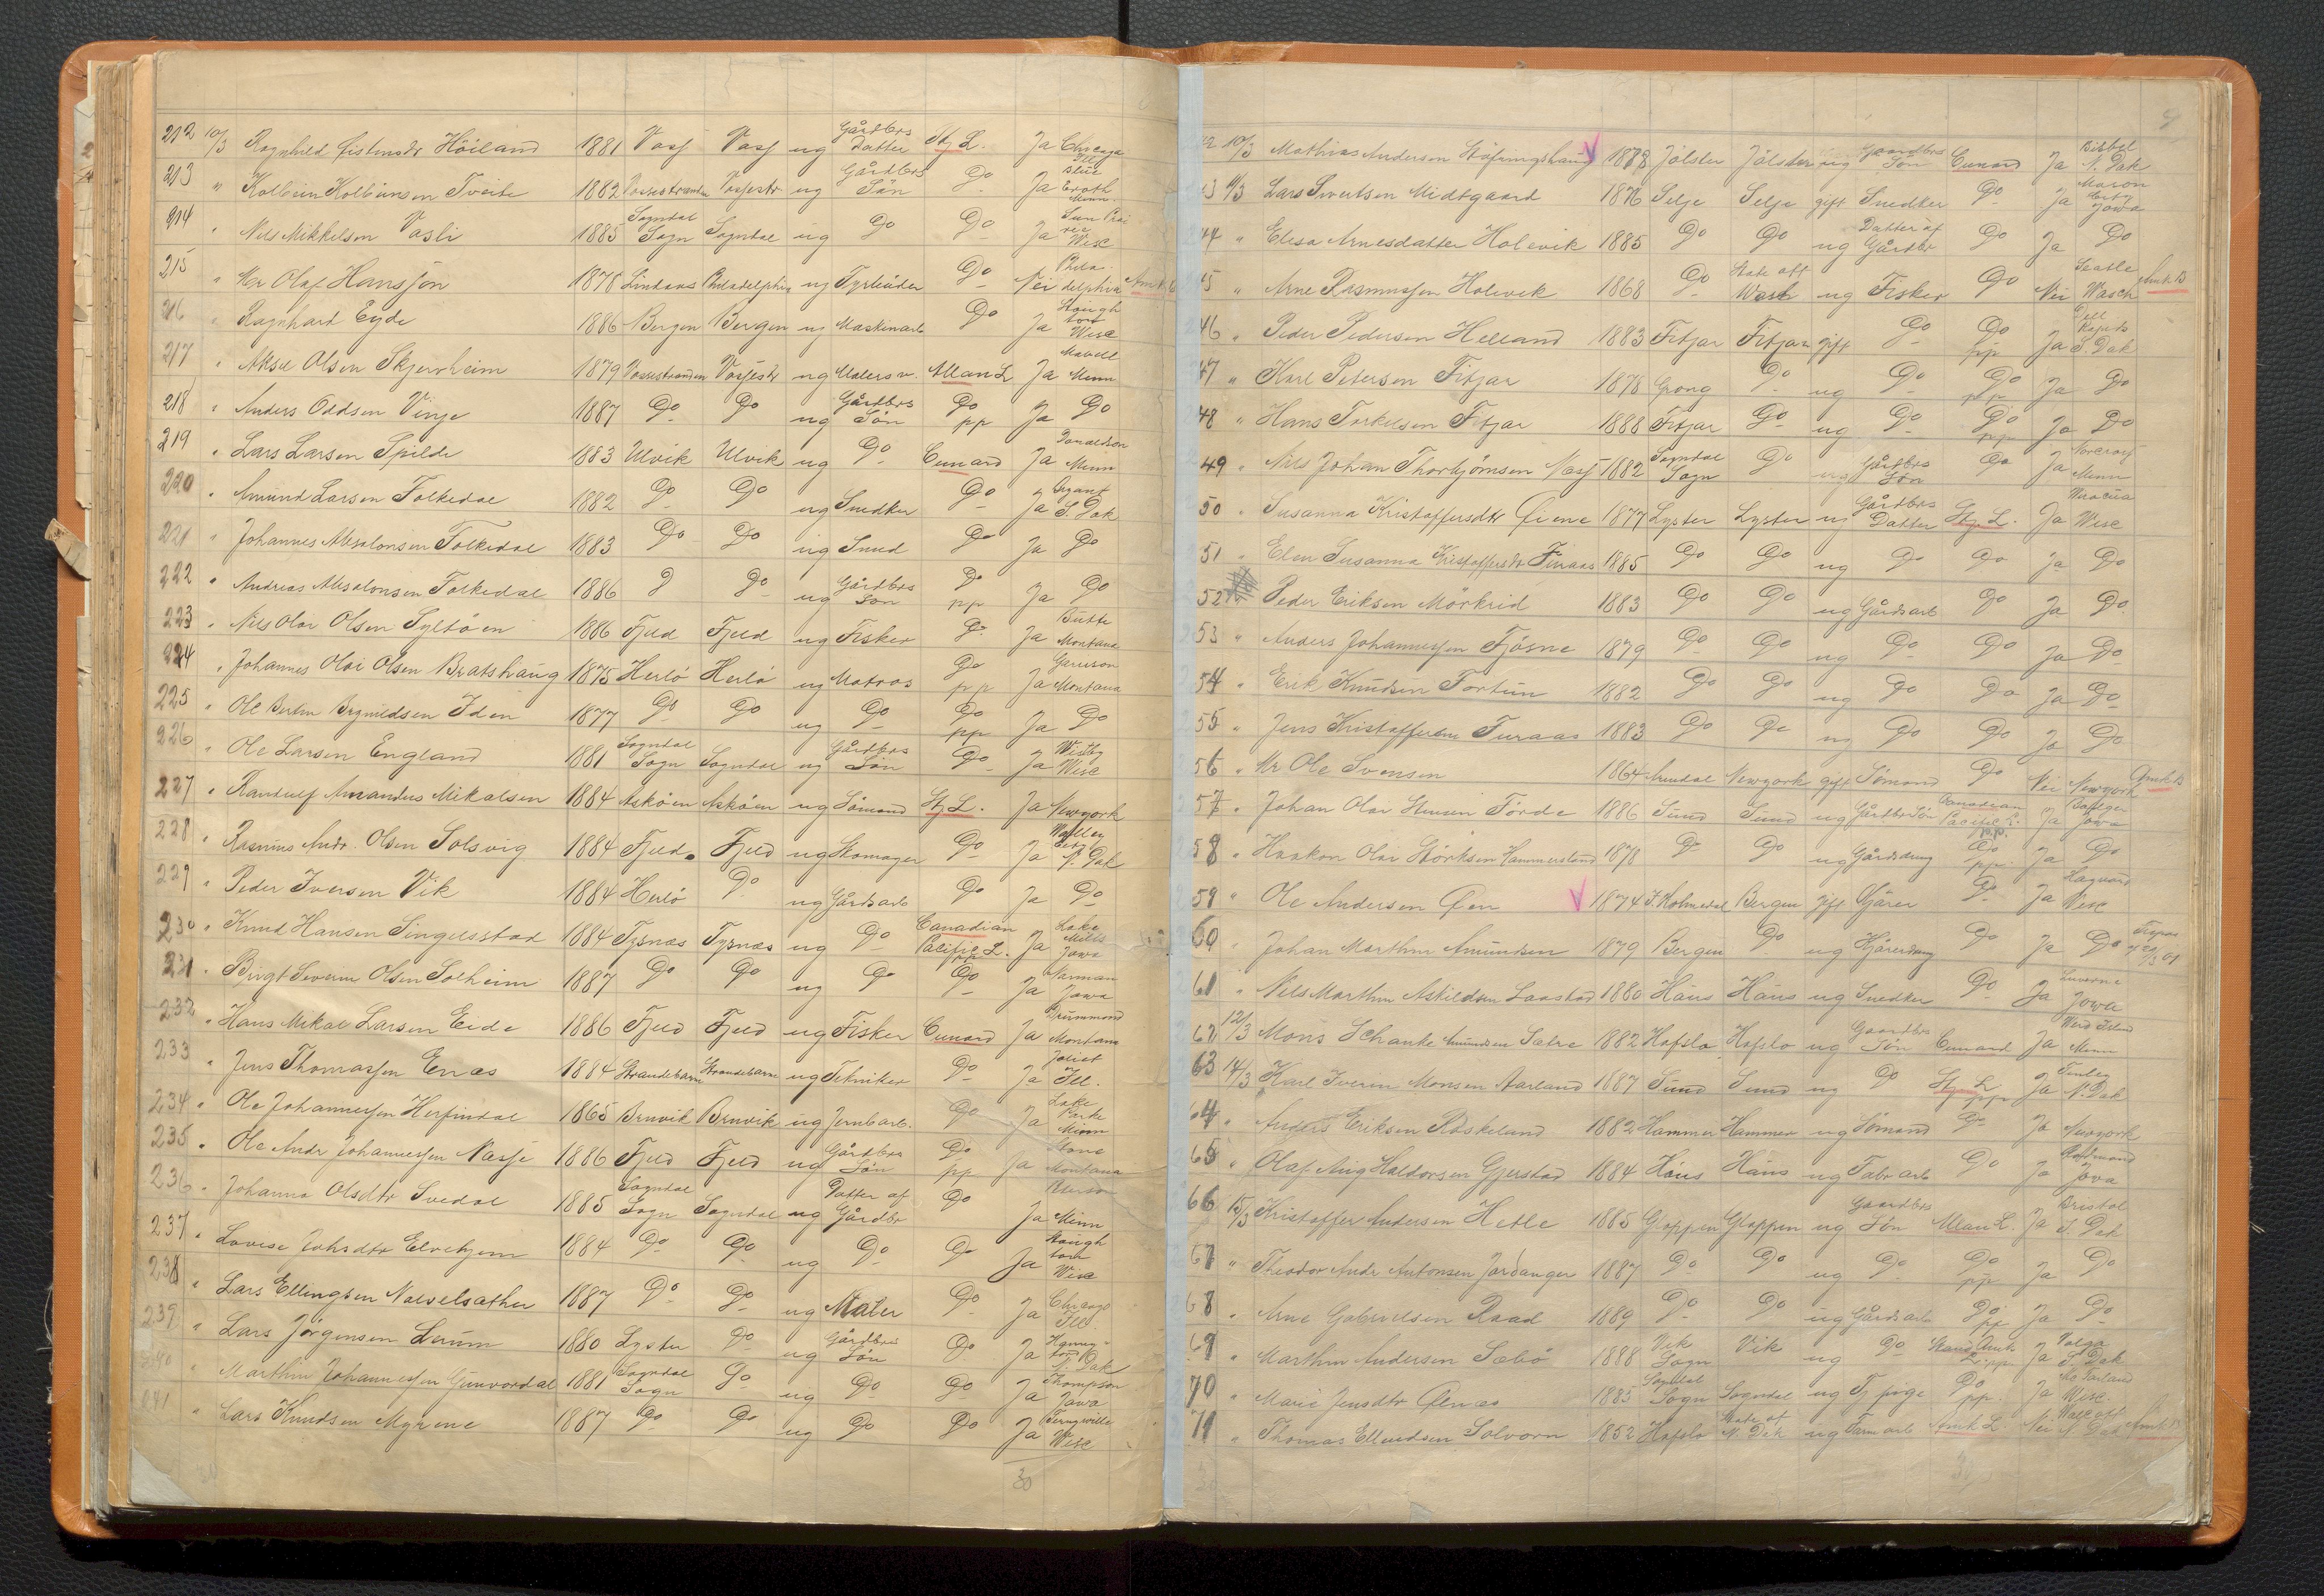 212 10/3 Ragnhild Eistensdr Höiland 1881 Voss Voss ug Gårdbrs Datter Stj L. Ja Chicago Ill
213 " Kolbein Kolbeinsen Tveite 1882 Vossestranden Vossestr ug Gårdbrs Sön Do Ja Blue Earth Minn
214 " Nils Mikkelsen Vasli 1885 Sogndal Sogn Sogndal ug Do Do Ja Sun Prairie Wisc
215 " Mr Olaf Hanssön 1878 Lindaas Philadelphia ug Do Nei Philadelphia
216 " Ragnhard Eyde 1886 Bergen Bergen ug Maskinarb Do Ja Stoughton Wisc
217 " Aksel Olsen Skjervheim 1879 Vossestranden Vossestr ug Allan L Ja Minn
218 " Anders Oddsen Vinje 1887 Do Do ug Gårdbrs Sön Do pp Ja Do
219 " Lars Larsen Spilde 1883 Ulvik Ulvik ug Do Cunard Ja Donaldson Minn
220 " Amund Larsen Folkedal 1882 Do Do ug Snedker Do Ja Bryant S. Dak
221 " Johannes Absalonsen Folkedal 1883 Do Do ug Smed Do Ja Do
222 " Andreas Absalonsen Folkedal 1886 D Do ug Gårdbrs Sön Do pp Ja Do
223 " Nils Olai Olsen Syltöen 1886 Fjeld Fjeld ug Fisker Do Ja Butte Montana
224 " Johannes Olai Olsen Bratshaug 1875 Herlö Herlö ug Matros Do pp Ja Garrison Montana
225 " Ole Bertin Brynildsen Iden 1877 Do Do ug Do Do pp Ja Do
226 " Ole Larsen England 1881 Sogndal Sogn Sogndal ug Gårdbrs Sön Do Ja Westby Wisc
227 " Randulf Amandus Mikalsen 1884 Asköen Asköen ug Sömand Stj L. Ja Newyork
228 " Rasmus Andr. Olsen Solsvig 1884 Fjeld Fjeld ug Skomager Do Ja Valley City N. Dak
229 " Peder Iversen Vik 1884 Herlö Do ug Gårdsarb Do Ja Do
230 " Knud Hansen Singelsstad 1884 Tysnæs Tysnæs ug Do Canadian Pacific L. pp Ja Lake Mills Jowa
231 " Birgt Severin Olsen Solheim 1887 Do Do ug Do Do Ja Jowa
232 " Hans Mikal Larsen Eide 1886 Fjeld Fjeld ug Fisker Cunard Ja Drummond Montana
233 " Jens Thomassen Enæs 1884 Strandebarm Strandebarm ug Tekniker Do Ja Joliet Ill.
234 " Ole Johannessen Herfindal 1865 Bruvik Bruvik ug Jernbarb. Do Ja Lake Park Minn
235 " Ole Andr Johannessen Næsse 1886 Fjeld Fjeld ug Gårdbrs Sön Do pp Ja Stone Montana
236 " Johanna Olsdtr Svedal 1885 Sogndal Sogn Sogndal ug Datter af Gårdbr Do Ja Minn
237 " Lovise Johsdtr Elvehjem 1884 Do Do ug Do Do Ja Stoughton Wisc
238 " Lars Ellingsen Nalvelsæther 1887 Do Do ug Maler Do Ja Chicago Ill.
239 " Lars Jörgensen Lerum 1880 Lyster Do ug Gårdbrs Sön Do Ja N. Dak
240 " Marthin Johannessen Gunvordal 1881 Sogndal Sogn Do ug Do Do Ja Thompson Jowa
241 " Lars Knudsen Myrene 1887 Do Do ug Do Do Ja Ferryville Wisc
30
9
42 10/3 Mathias Anderson Stöfringshaug 1878 Jölster Jölster ug Gaardbrs Sön Cunard Ja Bisbet N. Dak
43 11/3 Lars Sivertsen Midtgaard 1876 Selje Selje gift Snedker Do Ja Mason City Jowa
44 " Elisa Arnesdatter Holevik 1885 Do Do ug Datter af Gårdbr Do Ja Do
45 " Arne Rasmussen Holevik 1868 Do State off Wash ug Fisker Do Nei Seatle Wasch Amk B
46 " Peder Pedersen Helland 1883 Fitjar Fitjar gift Do Do pp Ja Dell Rapids S. Dak
47 " Karl Petersen Fitjar 1878 Grong Do ug Do Do pp Ja Do
48 " Hans Torkelsen Fitjar 1888 Fitjar Do ug Do Do pp Ja Do
49 " Nils Johan Thorbjörnsen Næss 1882 Sogndal Sogn Do ug Gårdbrs Sön Do Ja Norcross Minn
50 " Susanna Kristoffersdtr Öiene 1877 Lyster Lyster ug Gårdbrs Datter Stj L. Ja Wisc
51 " Elen Susanna Kristoffersdr Furaas 1885 Do Do ug Do Do Ja Do
52 Peder Eriksen Mörkrid 1883 Do Do ug Gårdsarb Do Ja Do
53 " Anders Johannessen Fjösne 1879 Do Do ug Do Do Ja Do
54 " Erik Knudsen Fortun 1882 Do Do ug Do Do Ja Do
55 " Jens Kristoffersen Furaas 1883 Do Do ug Do Do Ja Do
56 " Mr Ole Svensen 1864 Arendal Newyork gift Sömand Do Nei Newyork Amk B
57 " Johan Olai Hansen Förde 1886 Sund Sund ug Gårdbrs Sön Canadian Pacific L. p.p. Ja Jowa
58 " Haakon Olai Störksen Hammersland 1878 Do Do ug Gårdsdreng Do pp. Ja Do
59 " Ole Andersen Öen 1874 Y. Holmedal Bergen gift Kjörer Do Ja Hayward Wisc
60 " Johan Marthin Amundsen 1879 Bergen Do ug Kjörerdreng Do Ja Do
61 " Nils Marthin Askildsen Laastad 1880 Haus Haus ug Snedker Do Ja Luverne Jowa
62 12/3 Mons Schanke Amundsen Sætre 1882 Hafslo Hafslo ug Gaardbrs Sön Cunard Ja Minn
63 14/3 Karl Iverin Monsen Aarland 1887 Sund Sund ug Do Stj L pp Ja Finley N. Dak
64 " Anders Eriksen Röskeland 1882 Hammer Hammer ug Sömand Do Ja Newyork
65 " Olaf Aug Haldorsen Gjerstad 1884 Haus Haus ug Fabr arb Do Ja Jova
66 15/3 Kristoffer Andersen Hetle 1885 Gloppen Gloppen ug Gaardbrs Sön Allan L. Ja Bristol S. Dak
67 " Theodor Andr Antonsen Jordanger 1887 Do Do ug Do Do pp Ja Do
68 " Arne Gabrielsen Raad 1889 Do Do ug Gårdsarb Do pp Ja Do
69 " Marthin Andersen Sæbö 1888 Vik Sogn Vik ug Do Skand Amk. L. pp. Ja Volga S. Dak
70 " Marie Jensdtr Ölnæs 1885 Sogndal Sogn Sogndal ug Tj pige Do pp. Ja Mc Farland Wisc.
71 " Thomas Ellendsen Solvorn 1852 Hafslo State of N. Dak ug Farm arb Amk L Nei N. Dak Amk B